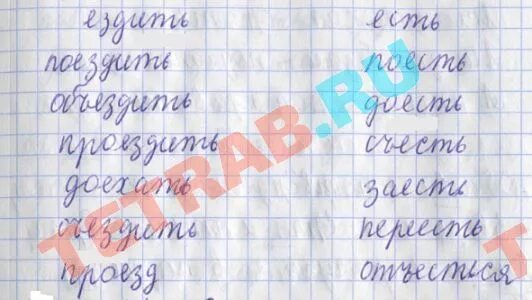 ездить есть
поездить поесть
объездить доесть
проездить съесть
доехать заесть
съездить переесть
проезд отъесться
TETRAB.RU
T